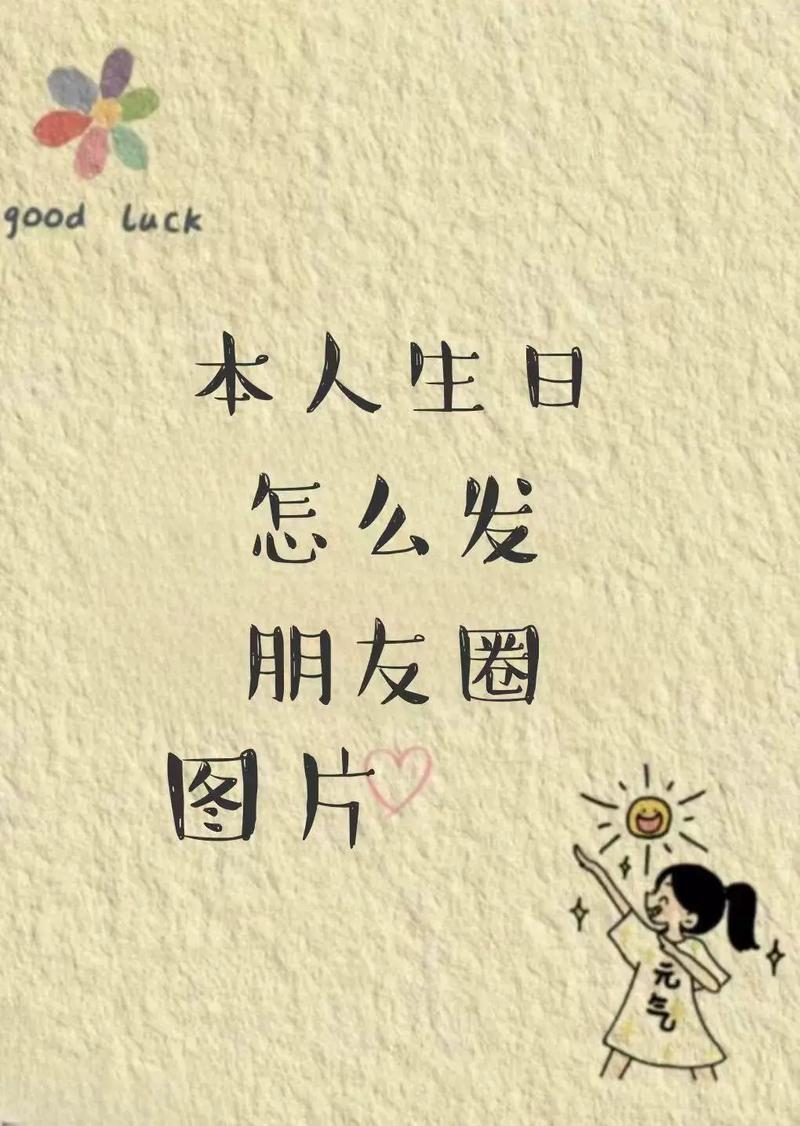 good luck
本人生日
怎么发
朋友圈
图片
元
气